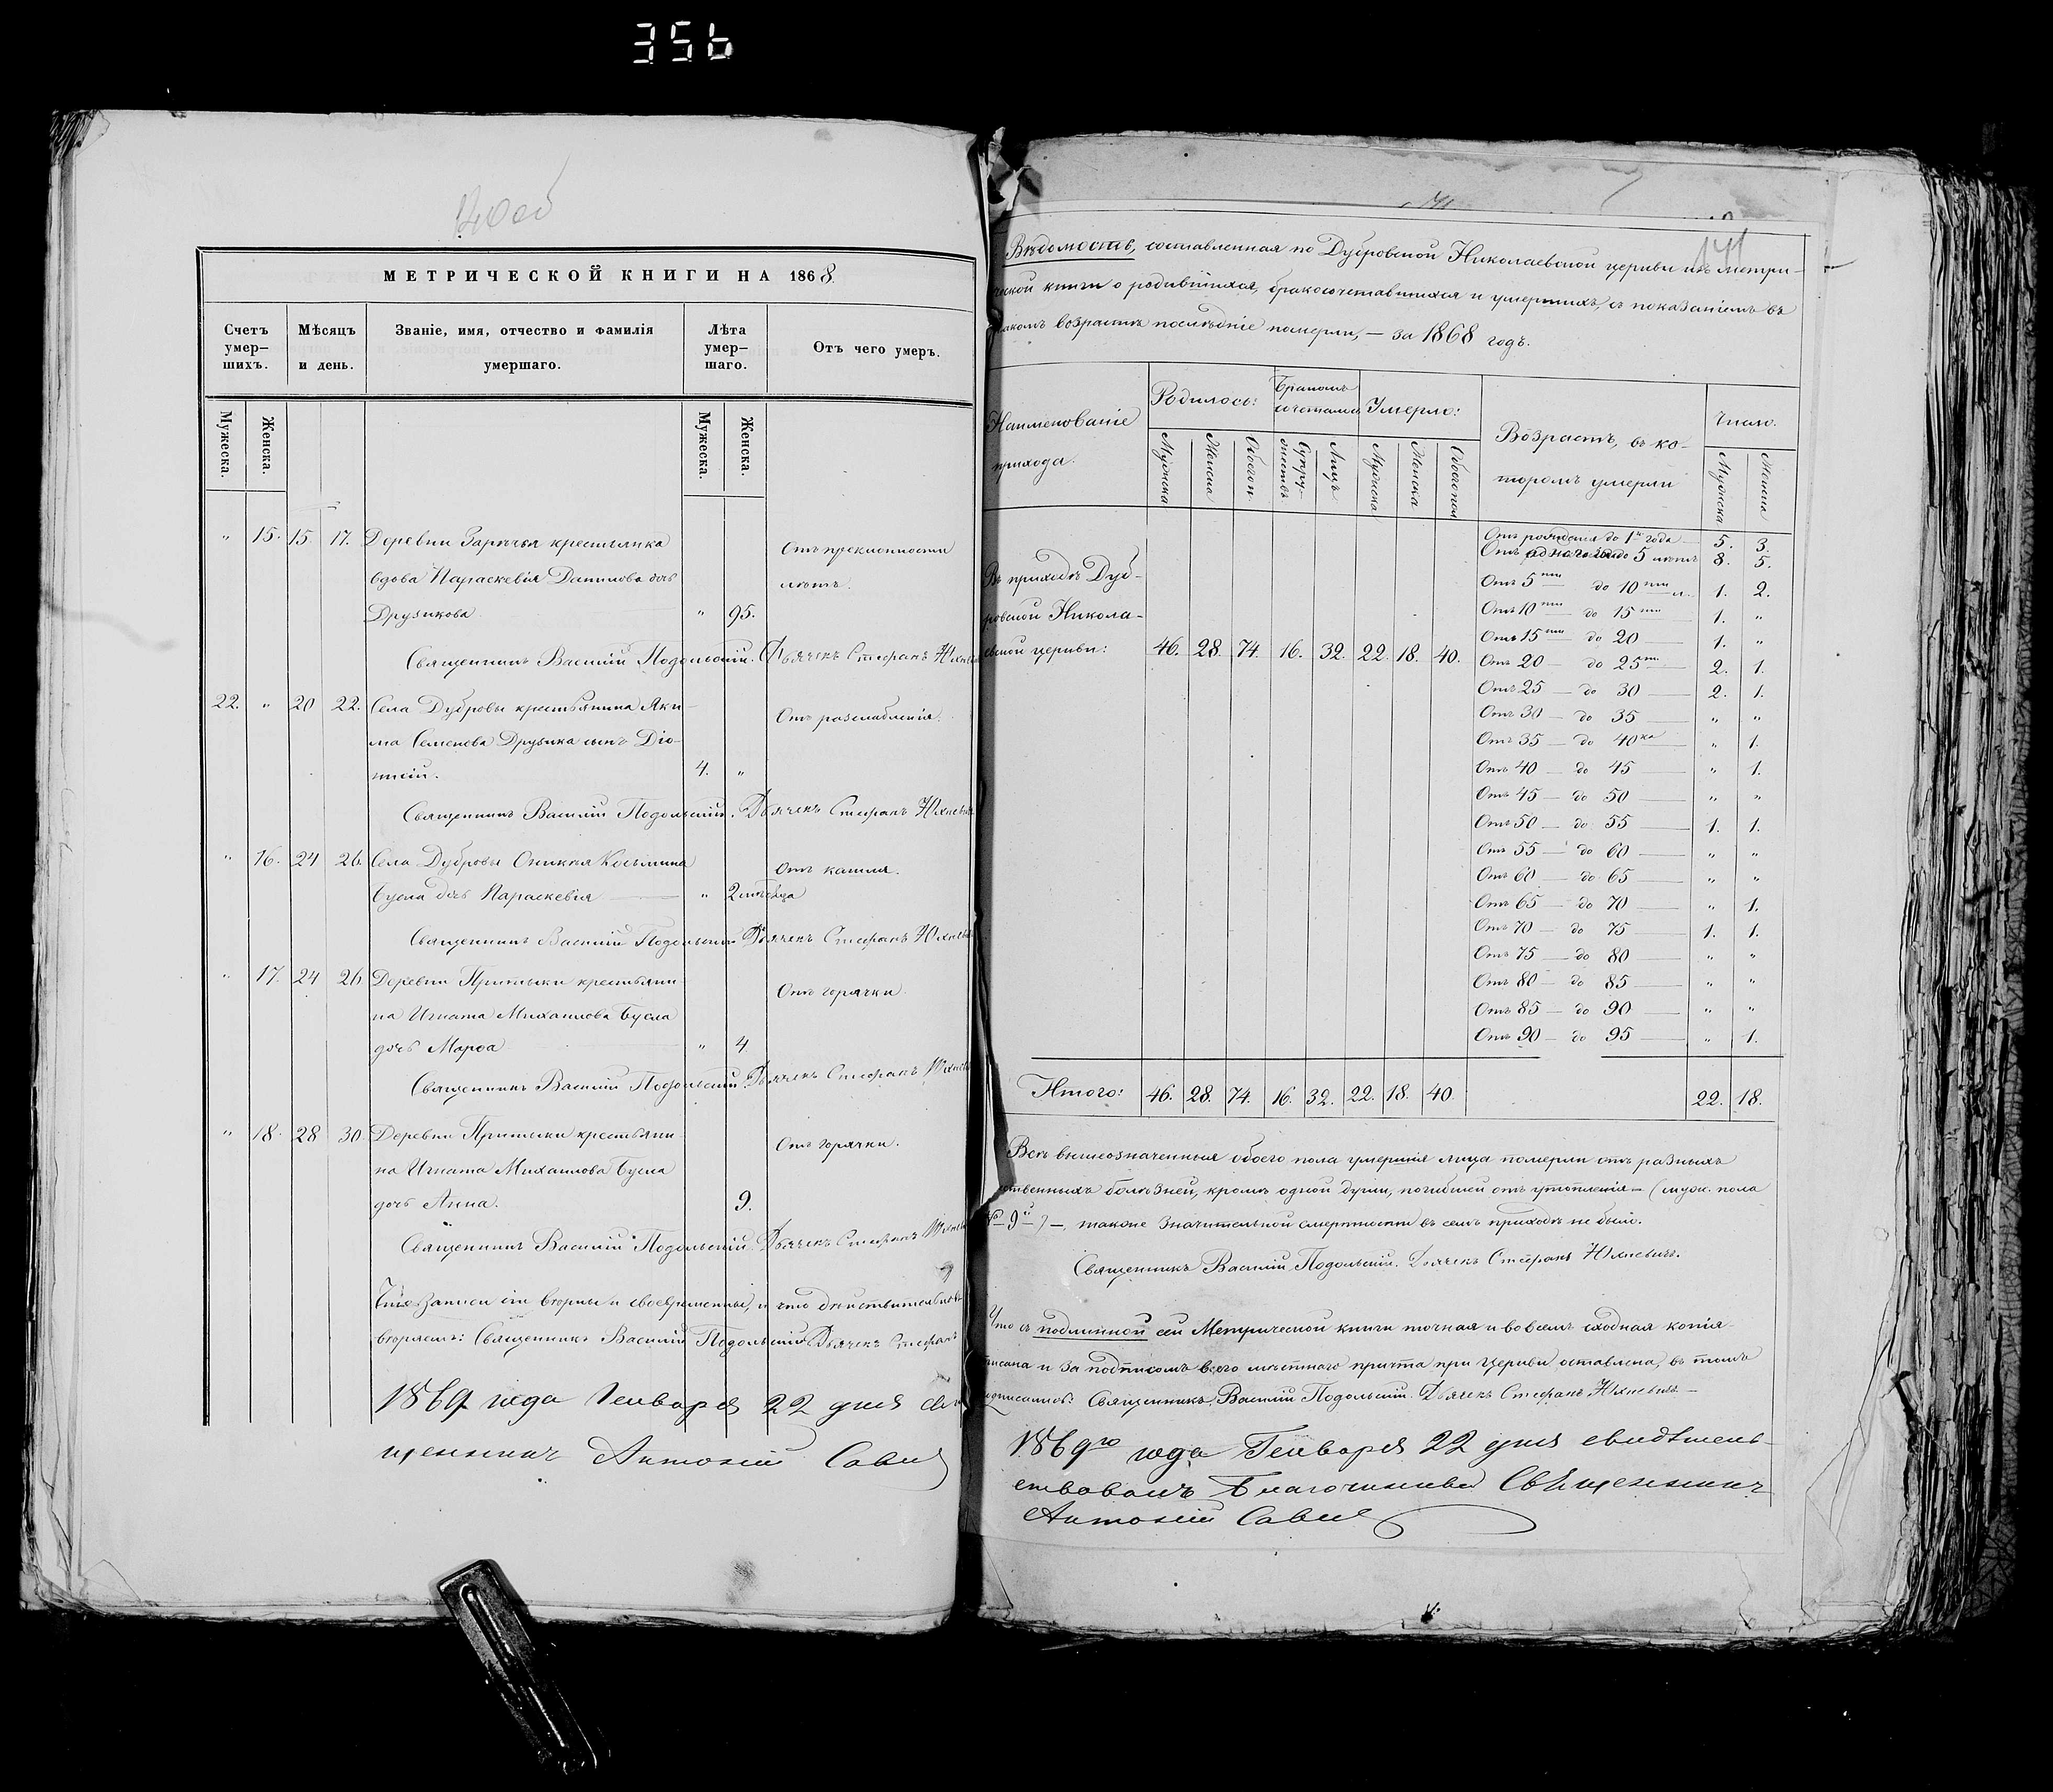 356
140 об
МЕТРИЧЕСКОЙ КНИГИ НА 1868.
Счетъ умер-шихъ. Мѣсяцъ и день. Званіе, имя, отчество и фамилія умершаго. Лѣта умер-шаго. Отъ чего умеръ.
Мужеска. Женска. Мужеска. Женска.
" 15. 15. 17. Деревни Зарѣчья крестьянка Отъ преклонности
вдова Параскевія Данилова дочь лѣтъ.
Друзикова " 95.
Священникъ Василій Подольскій. Дьячекъ Стефанъ Юхневичъ
22. " 20 22. Села Дубровы крестьянина Яки- Отъ разслабленія.
ма Семенова Друзика сынъ Діо-
нисій. 4. "
Священникъ Василій Подольскій. Дьячекъ Стефанъ Юхневичъ
" 16. 24 26. Села Дубровы Козьмина Отъ кашля.
Бусла дочь Параскевія " 2 мѣсяца
Священникъ Василій Подольскій Дьячекъ Стефанъ Юхневичъ
" 17. 24 26 Деревни Притыки крестьяни- Отъ горячки.
на Игната Михаилова Бусла
дочь Марѳа " 4
Священникъ Василій Подольскій. Дьячекъ Стефанъ Юхневичъ
" 18. 28 30. Деревни Притыки крестьяни- Отъ горячки.
на Игната Михаилова Бусла
дочь Анна. 9.
Священникъ Василій Подольскій. Дьячекъ Стефанъ Юхневичъ
записи вѣрны и своевременны, и что дѣйствительны
Священникъ Василій Подольскій Дьячекъ Стефанъ
1869 года Генваря 22 дня свя
щенникъ Антоній Савич
141
Вѣдомость, составленная по Дубровской Николаевской церкви изъ метри-
ческой книги о родившихся, бракосочетавшихся и умершихъ, съ показаніемъ въ
какомъ возрастѣ послѣдніе померли, — за 1868 годъ.
Наименованіе прихода. Родилось: Бракомъ сочеталось Умерло: Возрастъ, въ ко-торомъ умерли Число.
Мужеска Женска Обоего п. Супру-жествъ Лицъ Мужеска Женска Обоего пол Мужеска Женска
Въ приходѣ Дуб-
ровской Никола-
евской церкви: 46. 28. 74. 16. 32. 22. 18. 40.
Отъ рожденія до 1го года 5. 3.
Отъ одного года до 5 лѣтъ 8. 5.
Отъ 5ти до 10ти л. 1. 2.
Отъ 10ти до 15ти 1. "
Отъ 15ти до 20 1. "
Отъ 20 — до 25ти 2. 1.
Отъ 25 — до 30 2. 1.
Отъ 30 — до 35 " "
Отъ 35 — до 40ка " 1.
Отъ 40 — до 45 " 1.
Отъ 45 — до 50 " "
Отъ 50 — до 55 1. 1.
Отъ 55 — до 60 " "
Отъ 60 — до 65 " "
Отъ 65 — до 70 " 1.
Отъ 70 — до 75 1. 1.
Отъ 75 — до 80 " "
Отъ 80 — до 85 " "
Отъ 85 — до 90 " "
Отъ 90 — до 95 " 1.
Итого: 46. 28. 74. 16. 32. 22. 18. 40. 22. 18.
Всѣ вышеозначенныя обоего пола умершія лица померли отъ разныхъ
ственныхъ болѣзней, кромѣ одной души, погибшей отъ утопленія — (муж. пола
№ 9й) —, также значительной смертности въ семъ приходѣ не было.
Священникъ Василій Подольскій. Дьячекъ Стефанъ Юхневичъ.
Что съ подлинной сей Метрической книги точная и во всемъ сходная копія
писана и за подписомъ всего мѣстнаго причта при церкви оставлена, въ томъ
подписались: Священникъ Василій Подольскій. Дьячекъ Стефанъ Юхневичъ —
1869го года Генваря 22 дня свидѣтель-
ствовалъ Благочинный Священникъ
Антоній Савич